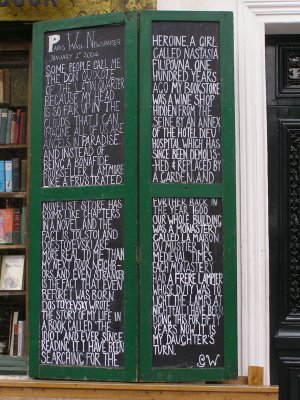 BOOK
PARIS WALL NEWSPAPER
JANUARY 1ST 2004
SOME PEOPLE CALL ME
THE DON QUIXOTE
OF THE LATIN QUARTER
BECAUSE MY HEAD
IS SO FAR UP IN THE
CLOUDS THAT I CAN
IMAGINE ALL OF US ARE
ANGELS IN PARADISE.
AND INSTEAD OF
BEING A BONAFIDE
BOOKSELLER I AM MORE
LIKE A FRUSTRATED
NOVELIST. STORE HAS
ROOMS LIKE CHAPTERS
IN A NOVEL AND THE
FACT IS TOLSTOI AND
DOSTOYEVSKI ARE
MORE REAL TO ME THAN
MY NEXT DOOR NEIGHB-
ORS, AND EVEN STRANGER
IS THE FACT THAT EVEN
BEFORE I WAS BORN
DOSTOYEVSKI WROTE
THE STORY OF MY LIFE IN
A BOOK CALLED 'THE
IDIOT' AND EVER SINCE
READING IT I HAVE BEEN
SEARCHING FOR THE
HEROINE, A GIRL
CALLED NASTASIA
FILIPOVNA. ONE
HUNDRED YEARS
AGO MY BOOKSTORE
WAS A WINE SHOP
HIDDEN FROM THE
SEINE BY AN ANNEX
OF THE HOTEL DIEU
HOSPITAL WHICH HAS
SINCE BEEN DEMOLIS-
HED & REPLACED BY
A GARDEN. AND
FURTHER BACK IN
THE YEAR 1600
OUR WHOLE BUILDING
WAS A MONASTERY
CALLED 'LA MAISON
DU MUSTIER'. IN
MEDIEVAL TIMES
EACH MONASTERY
HAD A FRERE LAMPIER
WHOSE DUTY WAS TO
LIGHT THE LAMPS AT
NIGHTFALL. I HAVE BEEN
DOING THIS FOR FIFTY
YEARS NOW IT IS
MY DAUGHTER'S
TURN.
GW